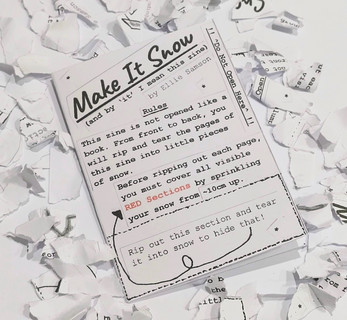 Make It Snow
(and by 'it' I mean this zine)
by Ellie Samson
Rules
This zine is not opened like a
book. From front to back, you
will rip and tear the pages of
this zine into little pieces
of snow.
Before ripping out each page,
you must cover all visible
RED Sections by sprinkling
your snow from ~10cm up.
Rip out this section and tear
it into snow to hide that!
!! Do Not Open Here !!
Open